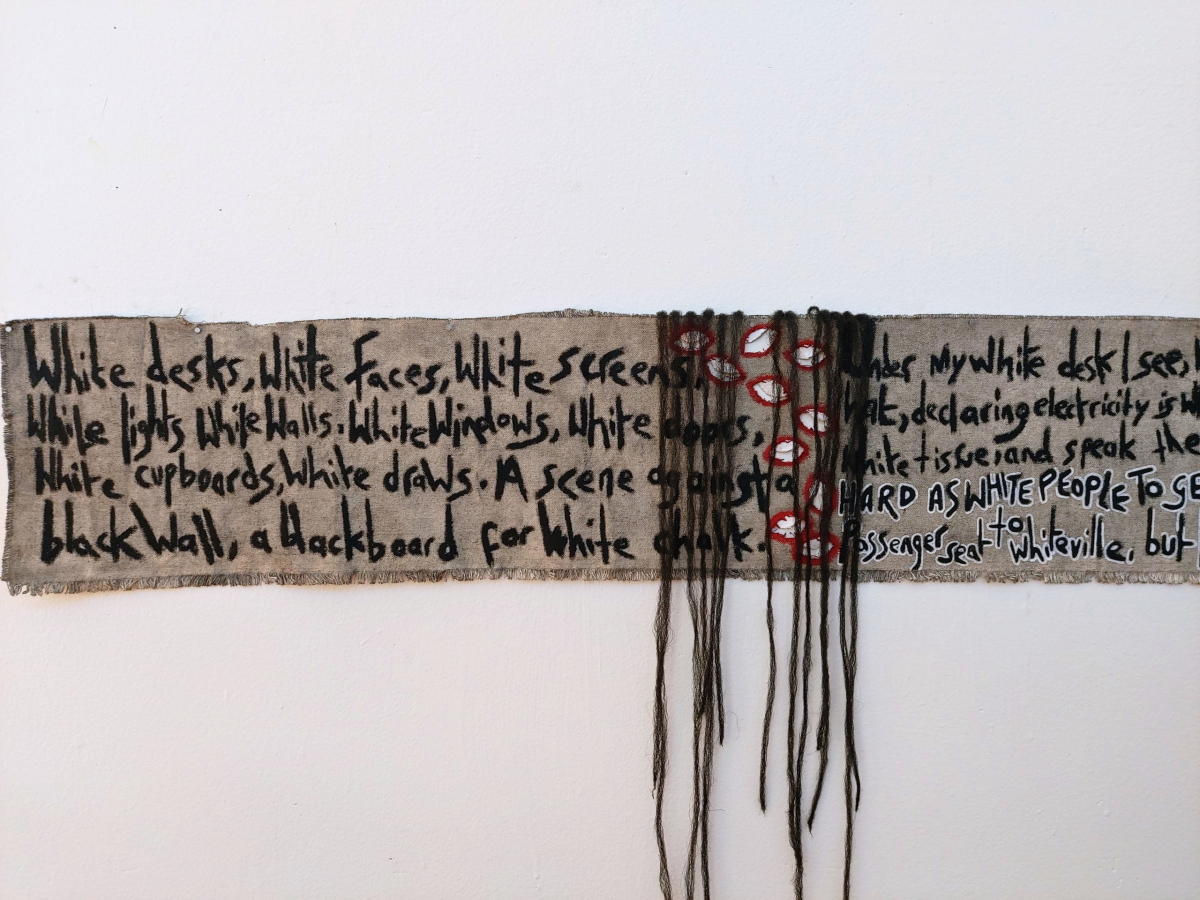 White desks, White Faces, White screens.
White lights White Walls. White Windows, White doors,
White cupboards, White draws. A scene against a
black Wall, a blackboard for White chalk.
Under My white desk I see,
declaring electricity is
White tissue, and speak the
HARD AS WHITE PEOPLE TO GE
Passenger seat to Whiteville, but